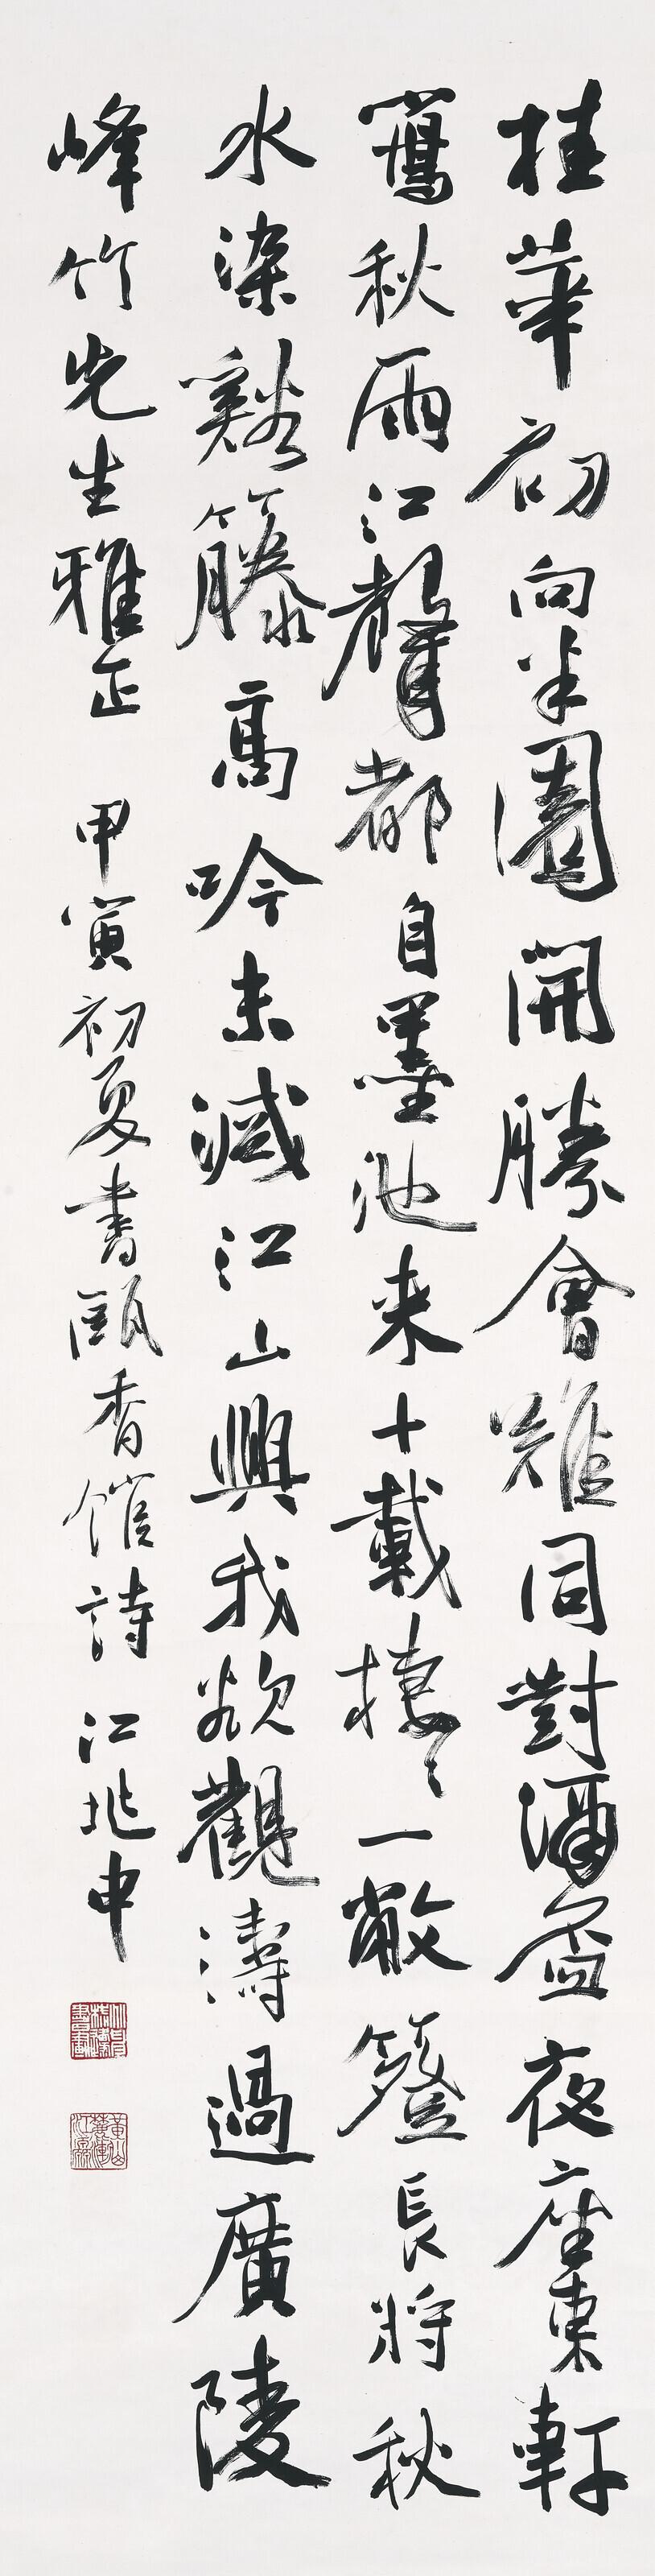 桂華初向半園開勝會難同對酒盃夜座東軒
寫秋雨江聲都自墨池來十載棲〻一敝簦長將秋
水染谿籐高吟未減江山興我欲觀濤過廣陵
峰竹先生雅正 甲寅初夏書甌香館詩 江兆申